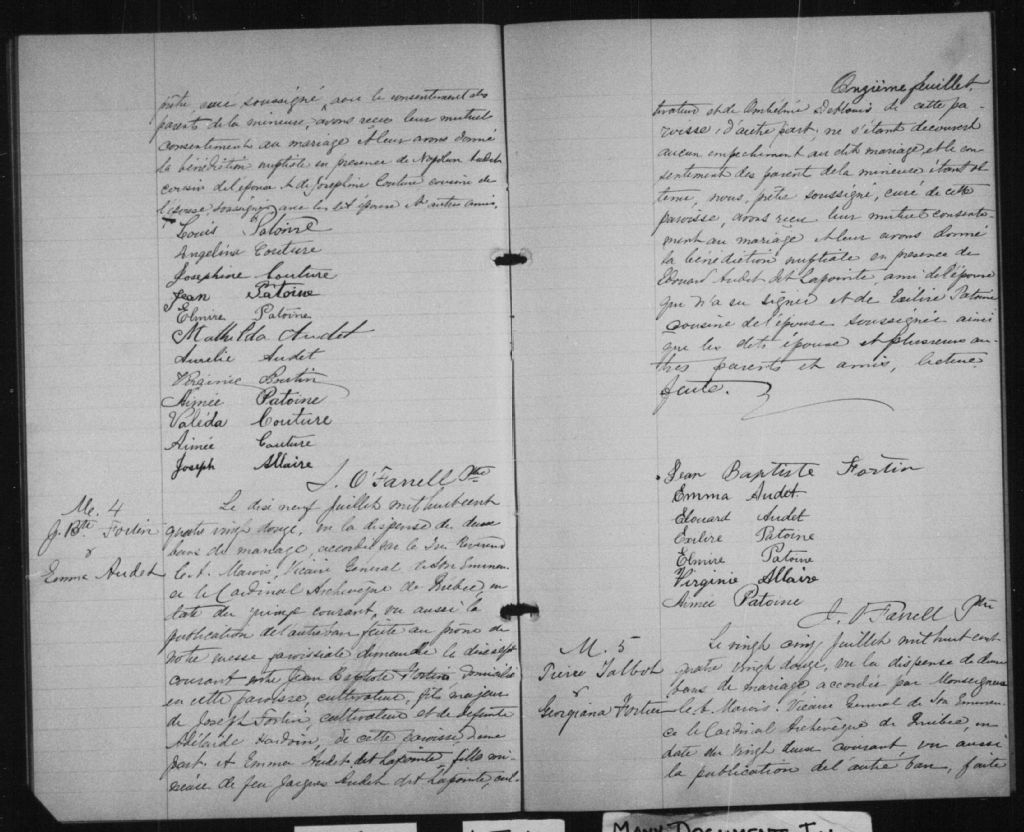 prêtre curé soussigné, avec le consentement des
parents de la mineure, avons reçu leur mutuel
consentement au mariage et leur avons donné
la bénédiction nuptiale en presence de Napoléon Audet
cousin de l'époux et de Josephine Couture cousine de
l'épouse, soussignés avec les dit époux et autres amis.
Louis Patoine
Angelina Couture
Josephine Couture
Jean Patoine
Elmire Patoine
Mathilda Audet
Aurelie Audet
Virginie Boutin
Aimée Patoine
Valéda Couture
Aimée Couture
Joseph Allaire
J. O'Farrell Ptre
M. 4
J. Bte Fortin
&
Emma Audet
Le dix neuf Juillet mil huit cent
quatre vingt douze, vu la dispense de deux
bans de mariage, accordée par le Très Révérend
C. A. Marois, Vicaire Général de Son Eminen-
ce le Cardinal Archevêque de Québec, en
date du quinze courant, vu aussi la
publication de l'autre ban faite au prône de
notre messe paroissiale dimanche le dix sept
courant entre Jean Baptiste Fortin, domicilié
en cette paroisse, cultivateur, fils majeur
de Joseph Fortin, cultivateur et de defunte
Adélaide Hardoin, de cette paroisse, d'une
part, et Emma Audet dit Lapointe, fille mi-
neure de feu Jacques Audet dit Lapointe, cul-
Onzième feuillet.
tivateur et de de cette pa-
roisse, d'autre part, ne s'étant découvert
aucun empêchement au dit mariage, et le con-
sentement des parent de la mineure étant ob-
tenu, nous, prêtre soussigné, curé de cette
paroisse, avons reçu leur mutuel consente-
ment au mariage et leur avons donné
la bénédiction nuptiale en presence de
Edouard Audet dit Lapointe, ami de l'époux
qui n'a su signer et de Exilire Patoine
cousine de l'épouse soussignée ainsi
que les dits époux et plusieurs au-
tres parents et amis, lecture
faite.
Jean Baptiste Fortin
Emma Audet
Edouard Audet
Exilire Patoine
Elmire Patoine
Virginie Allaire
Aimée Patoine
J. O'Farrell Ptre
M. 5
Pierre Talbot
&
Georgiana Fortier
Le vingt cinq Juillet mil huit cent
quatre vingt douze, vu la dispense de deux
bans de mariage accordée par Monseigneur
C. A. Marois, Vicaire Général de Son Eminen-
ce le Cardinal Archevêque de Québec, en
date du vingt deux courant, vu aussi
la publication de l'autre ban, faite
MANY DOCUMENTS IN